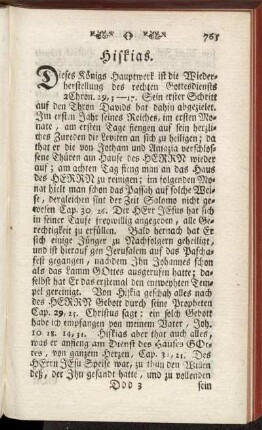 761
Hiskias.
Dieses Königs Hauptwerk ist die Wieder-
herstellung des rechten Gottesdiensts
2Chron. 29, 3—17. Sein erster Schritt
auf den Thron Davids hat dahin abgezielet.
Im ersten Jahr seines Reiches, im ersten Mo-
nate, am ersten Tage fiengen auf sein herzli-
ches Zureden die Leviten an sich zu heiligen; da
that er die von Jotham und Amazia verschlos-
sene Thüren am Hause des HERRN wieder
auf; am achten Tag fieng man an das Haus
des HERRN zu reinigen; im folgenden Mo-
nat hielt man schon das Passah auf solche Wei-
se, dergleichen sint der Zeit Salomo nicht ge-
wesen Cap. 30, 26. Der HErr JEsus hat sich
in seiner Taufe freywillig angezogen, alle Ge-
rechtigkeit zu erfüllen. Bald hernach hat Er
sich einige Jünger zu Nachfolgern geheiliget,
und ist hierauf gen Jerusalem auf das Pascha-
fest gegangen, nachdem Ihn Johannes schon
als das Lamm GOttes ausgerufen hatte; da-
selbst hat Er das erstemal den entweyhten Tem-
pel gereinigt. Von Hiskia geschah alles nach
des HERRN Gebott durch seine Propheten
Cap. 29, 25. Christus sagt: ein solch Gebott
habe ich empfangen von meinem Vater, Joh.
10, 18. 14, 31. Hiskias aber that auch alles,
was er anfieng am Dienst des Hauses GOt-
tes, von ganzem Herzen, Cap. 31, 21. Des
HErrn JEsu Speise war, zu thun den Willen
deß, der Ihn gesandt hatte, und zu vollenden
Ddd 3 sein